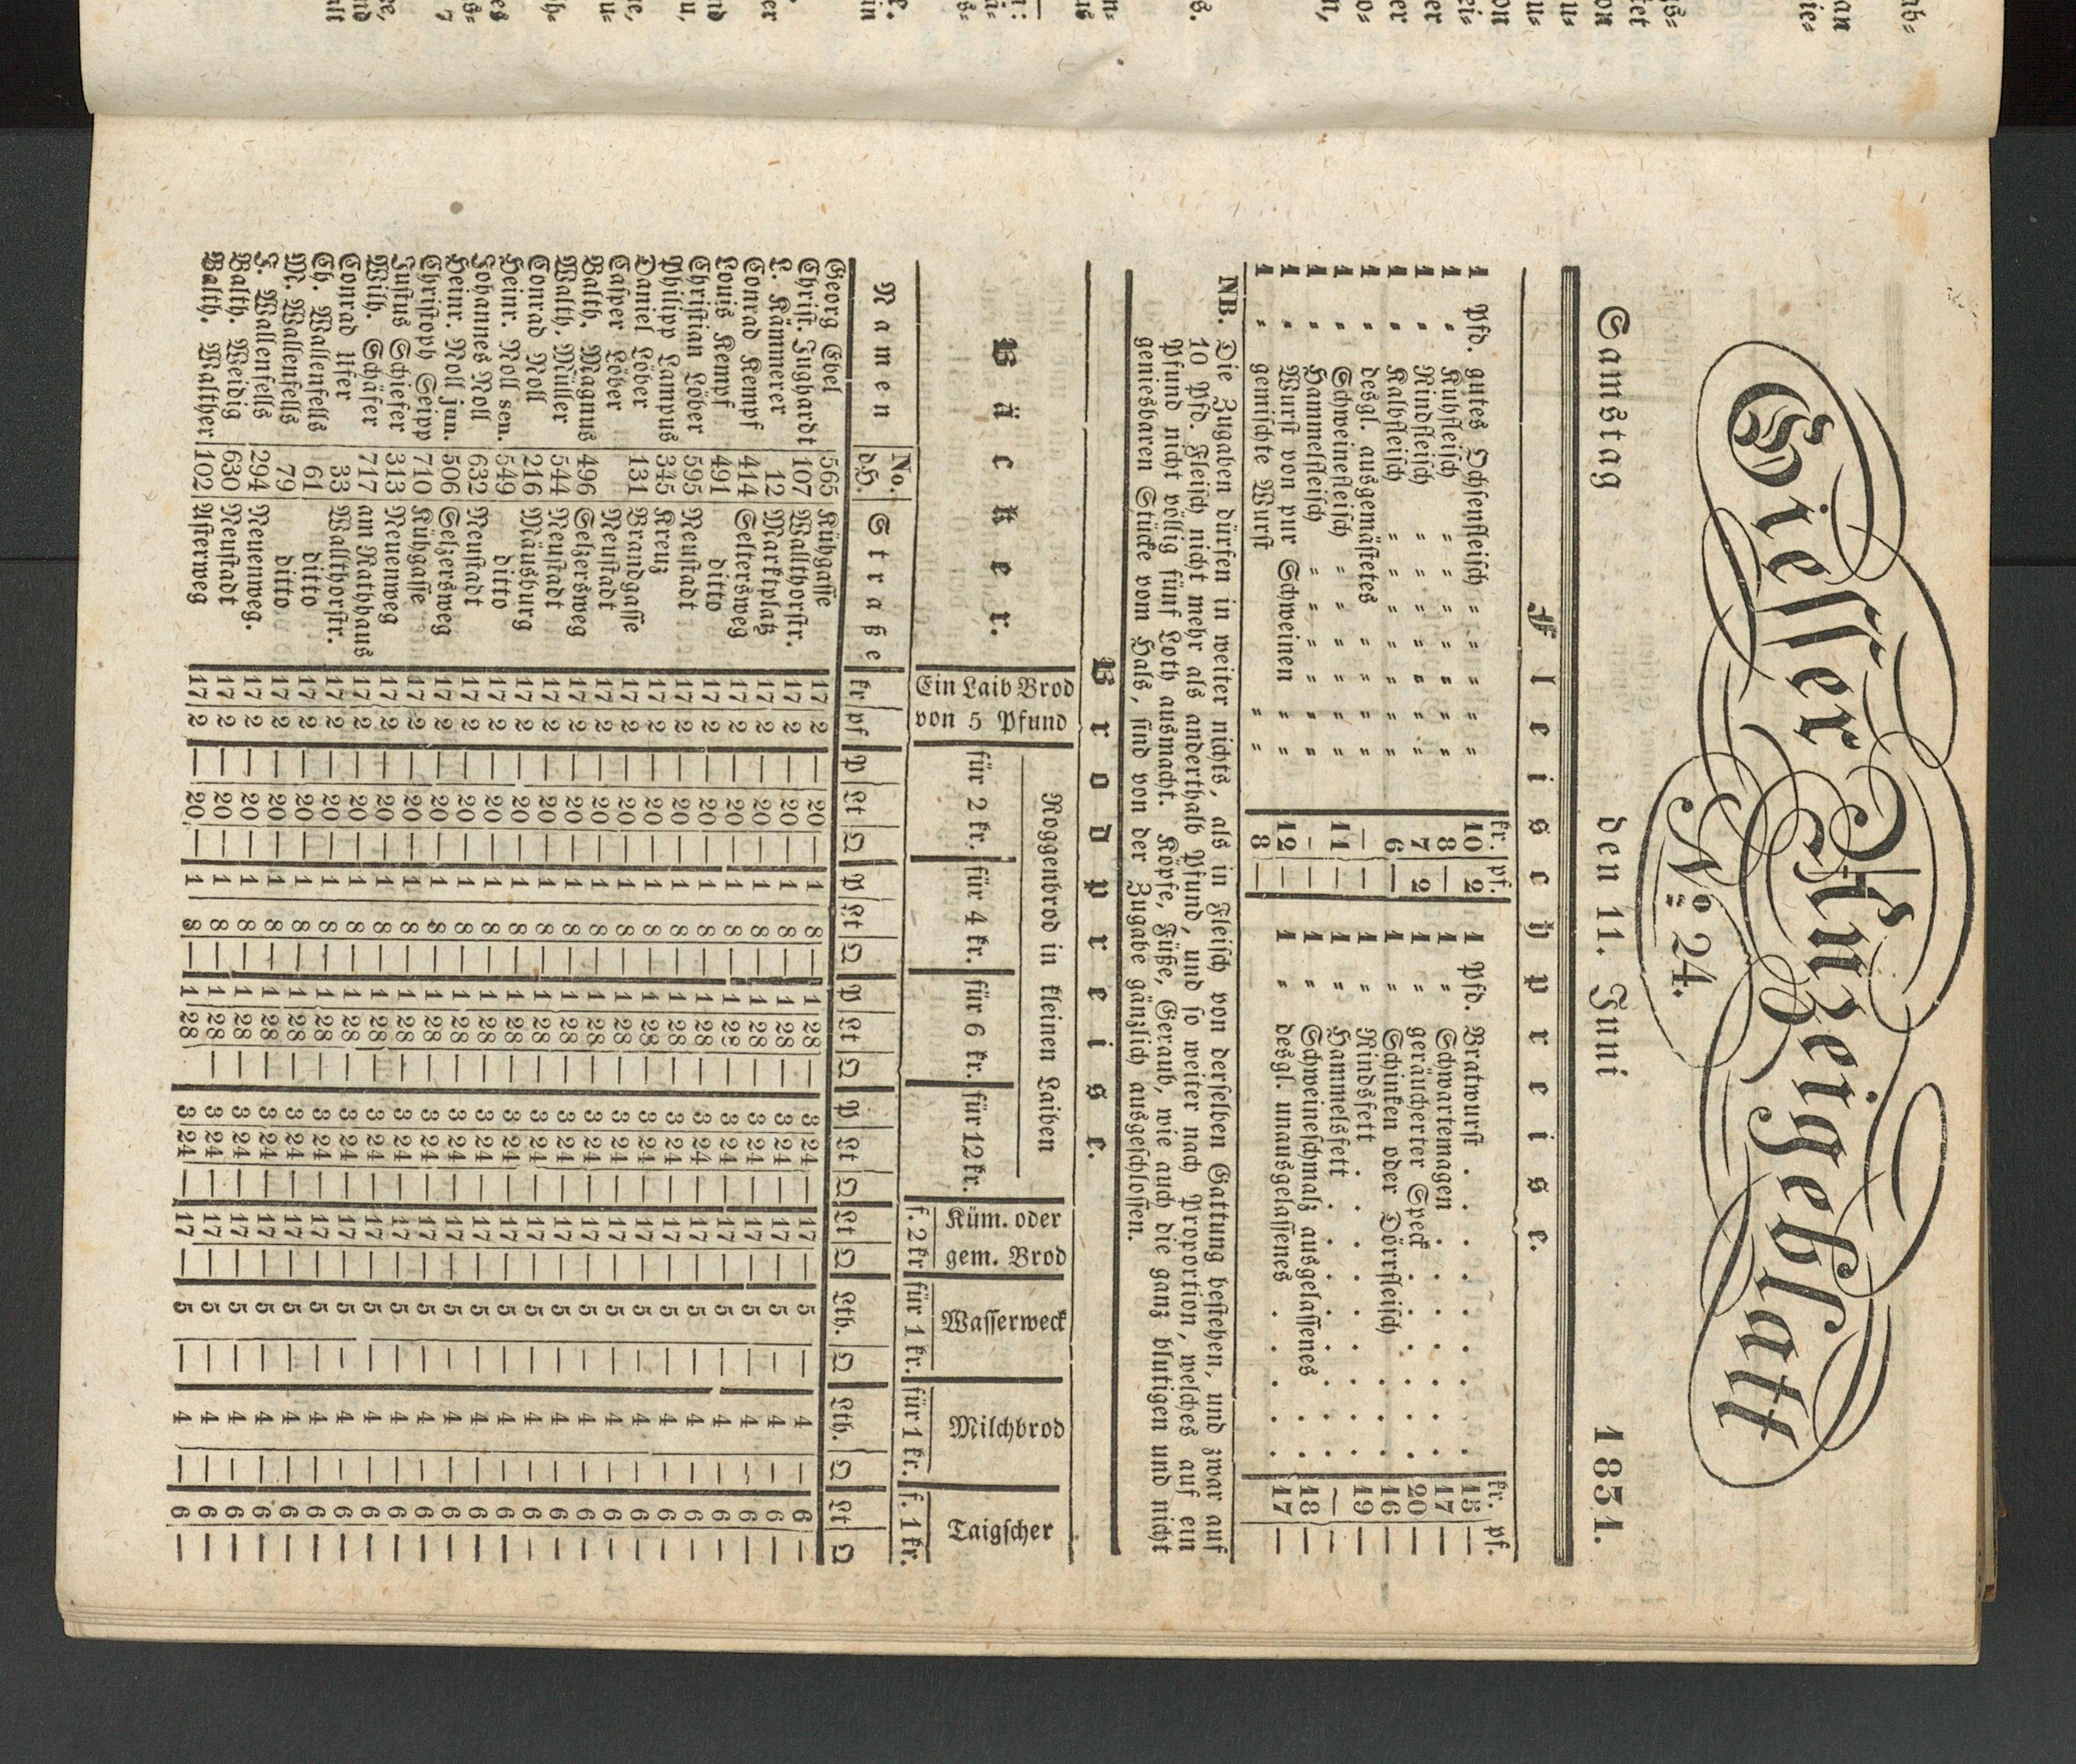 Giesser Anzeigeblatt
No 24.
Samstag den 11. Juni 1831.
Fleischpreise.
kr. pf. kr. pf.
1 Pfd. gutes Ochsenfleisch " " " " " 10 2 1 Pfd. Bratwurst . . . . . . . 15 —
1 " Kuhfleisch " " " " " " 8 — 1 " Schwartenmagen . . . . . 17 —
1 " Rindfleisch " " " " " " 7 2 1 " geräucherter Speck . . . . . 20 —
1 " Kalbfleisch " " " " " " 6 — 1 " Schinken oder Dörrfleisch . . . 16 —
1 " desgl. ausgemästetes " " " " — — 1 " Rindsfett . . . . . . . 19 —
1 " Schweinefleisch " " " " " 11 — 1 " Hammelsfett . . . . . . — —
1 " Hammelfleisch " " " " " — — 1 " Schweineschmalz ausgelassenes . . 18 —
1 " Wurst von pur Schweinen " " 12 — 1 " desgl. unausgelassenes . . . . 17 —
1 " gemischte Wurst " " 8 —
NB. Die Zugaben dürfen in weiter nichts, als in Fleisch von derselben Gattung bestehen, und zwar auf
10 Pfd. Fleisch nicht mehr als anderthalb Pfund, und so weiter nach Proportion, welches auf ein
Pfund nicht völlig fünf Loth ausmacht. Köpfe, Füße, Geraub, wie auch die ganz blutigen und nicht
geniesbaren Stücke vom Hals, sind von der Zugabe gänzlich ausgeschlossen.
Brodpreise.
Bäcker. Ein Laib Brod von 5 Pfund Roggenbrod in kleinen Laiben Küm. oder gem. Brod Wasserweck Milchbrod Taigscher
für 2 kr. für 4 kr. für 6 kr. für 12 kr. f. 2 kr für 1 kr. für 1 kr. f. 1 kr.
Namen No. d. H. Straße kr pf P Lt Q P Lt Q P Lt Q P Lt Q Lt Q Lth. Q Lth. Q Lt Q
Georg Ebel 565 Kühgasse 17 2 — 20 — 1 8 — 1 28 — 3 24 — 17 — 5 — 4 — 6 —
Christ. Jughardt 107 Wallthorstr. 17 2 — 20 — 1 8 — 1 28 — 3 24 — 17 — 5 — 4 — 6 —
L. Kämmerer 12 Marktplatz 17 2 — 20 — 1 8 — 1 28 — 3 24 — 17 — 5 — 4 — 6 —
Conrad Kempf 414 Seltersweg 17 2 — 20 — 1 8 — 1 28 — 3 24 — 17 — 5 — 4 — 6 —
Louis Kempf 491 ditto 17 2 — 20 — 1 8 — 1 28 — 3 24 — 17 — 5 — 4 — 6 —
Christian Löber 595 Neustadt 17 2 — 20 — 1 8 — 1 28 — 3 24 — 17 — 5 — 4 — 6 —
Philipp Lampus 345 Kreuz 17 2 — 20 — 1 8 — 1 28 — 3 24 — 17 — 5 — 4 — 6 —
Daniel Löber 131 Brandgasse 17 2 — 20 — 1 8 — 1 28 — 3 24 — 17 — 5 — 4 — 6 —
Casper Löber Neustadt 17 2 — 20 — 1 8 — 1 28 — 3 24 — 17 — 5 — 4 — 6 —
Balth. Magnus 496 Selzersweg 17 2 — 20 — 1 8 — 1 28 — 3 24 — 17 — 5 — 4 — 6 —
Walth. Müller 544 Neustadt 17 2 — 20 — 1 8 — 1 28 — 3 24 — 17 — 5 — 4 — 6 —
Conrad Noll 216 Mäusburg 17 2 — 20 — 1 8 — 1 28 — 3 24 — 17 — 5 — 4 — 6 —
Heinr. Noll sen. 549 ditto 17 2 — 20 — 1 8 — 1 28 — 3 24 — 17 — 5 — 4 — 6 —
Johannes Noll 632 Neustadt 17 2 — 20 — 1 8 — 1 28 — 3 24 — 17 — 5 — 4 — 6 —
Heinr. Noll jun. 506 Selzersweg 17 2 — 20 — 1 8 — 1 28 — 3 24 — 17 — 5 — 4 — 6 —
Christoph Seipp 710 Kühgasse 17 2 — 20 — 1 8 — 1 28 — 3 24 — 17 — 5 — 4 — 6 —
Justus Schiefer 313 Neuenweg 17 2 — 20 — 1 8 — 1 28 — 3 24 — 17 — 5 — 4 — 6 —
Wilh. Schäfer 717 am Rathhaus 17 2 — 20 — 1 8 — 1 28 — 3 24 — 17 — 5 — 4 — 6 —
Conrad Ufer 33 Wallthorstr. 17 2 — 20 — 1 8 — 1 28 — 3 24 — 17 — 5 — 4 — 6 —
Ch. Wallenfells 61 ditto 17 2 — 20 — 1 8 — 1 28 — 3 24 — 17 — 5 — 4 — 6 —
W. Wallenfells 79 ditto 17 2 — 20 — 1 8 — 1 28 — 3 24 — 17 — 5 — 4 — 6 —
F. Wallenfells 294 Neuenweg. 17 2 — 20 — 1 8 — 1 28 — 3 24 — 17 — 5 — 4 — 6 —
Balth. Weidig 630 Neustadt 17 2 — 20 — 1 8 — 1 28 — 3 24 — 17 — 5 — 4 — 6 —
Balth. Walther 102 Asterweg 17 2 — 20 — 1 8 — 1 28 3 24 — 17 — 5 — 4 — 6 —